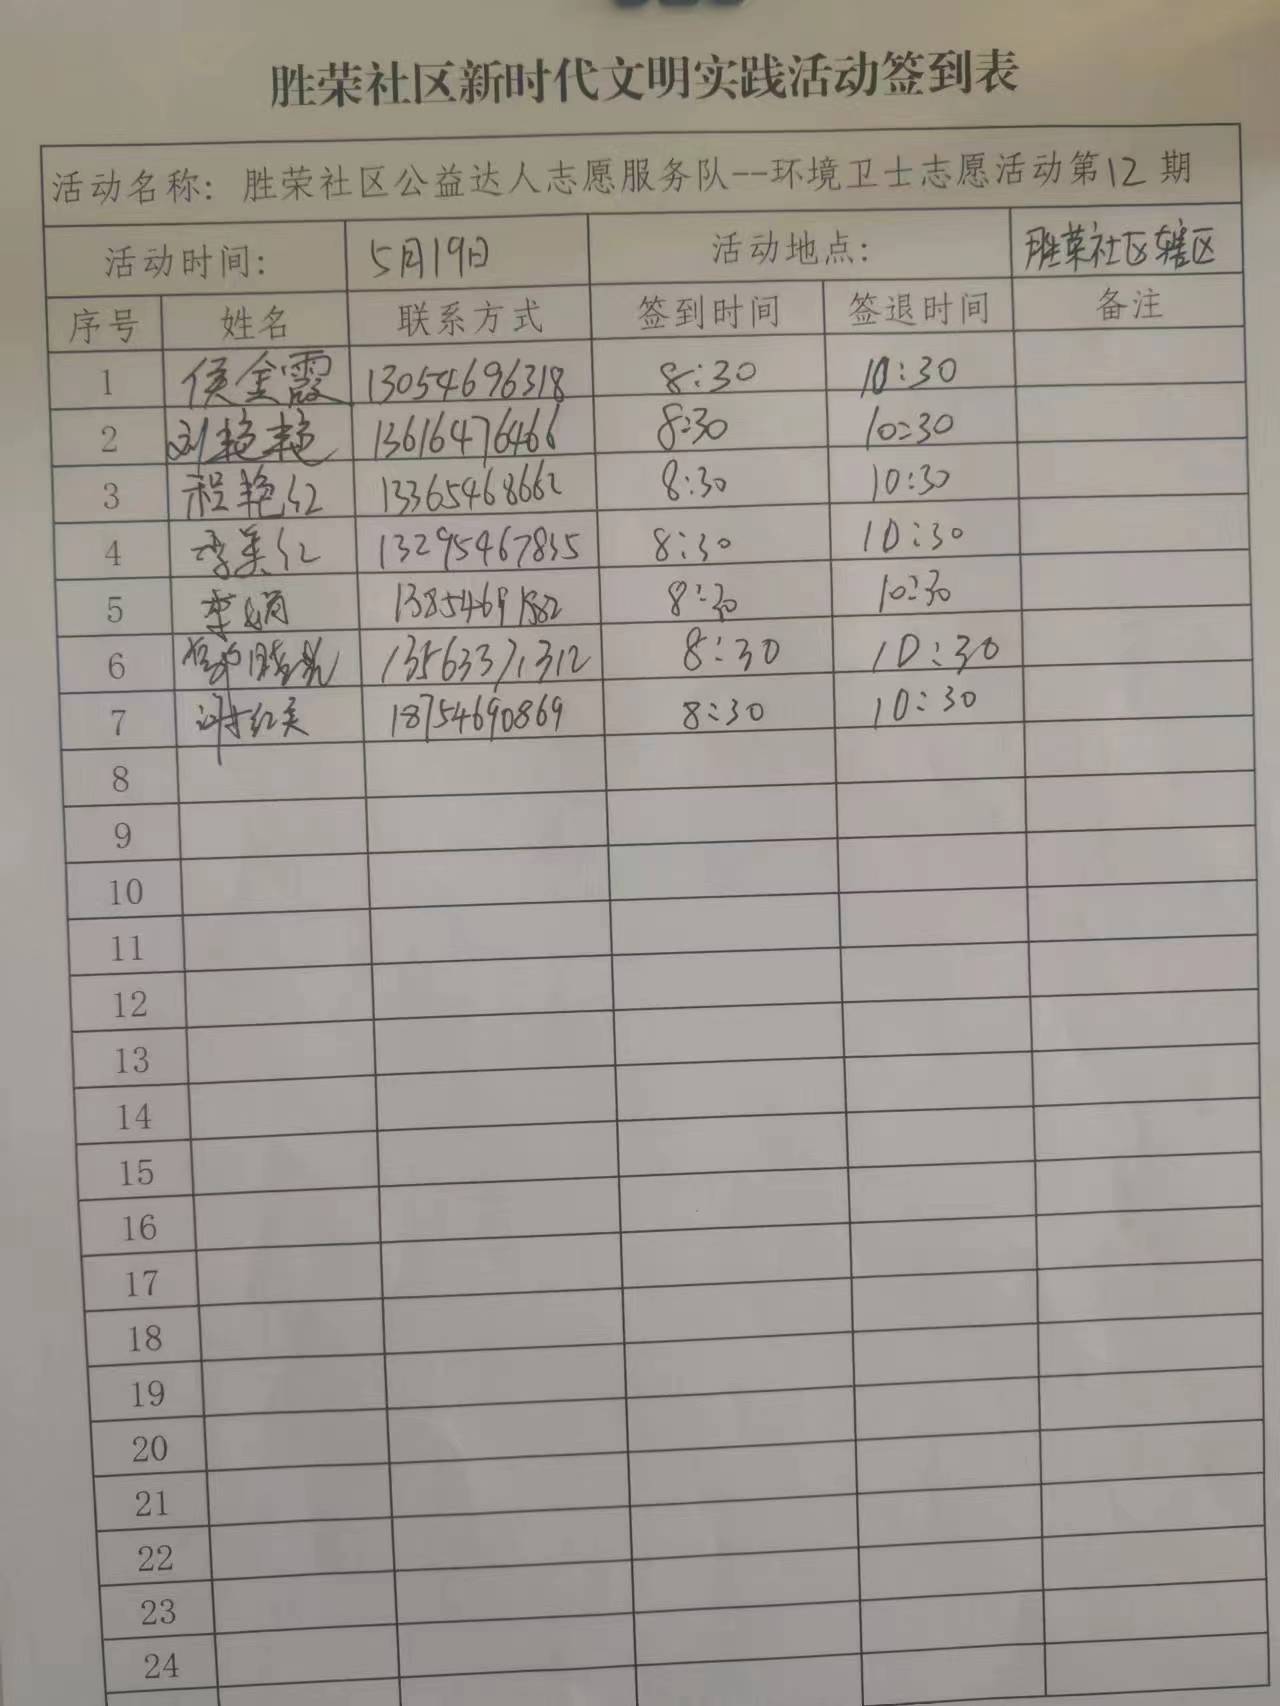 胜荣社区新时代文明实践活动签到表
活动名称: 胜荣社区公益达人志愿服务队--环境卫士志愿活动第12期
活动时间: 5月19日 活动地点: 胜荣社区辖区
序号 姓名 联系方式 签到时间 签退时间 备注
1 侯金霞 13054696318 8:30 10:30
2 刘艳艳 13616476466 8:30 10:30
3 程艳红 13365468662 8:30 10:30
4 李美红 13295467835 8:30 10:30
5 李娟 8:30 10:30
6 13563371312 8:30 10:30
7 谢红美 18754690869 8:30 10:30
8
9
10
11
12
13
14
15
16
17
18
19
20
21
22
23
24